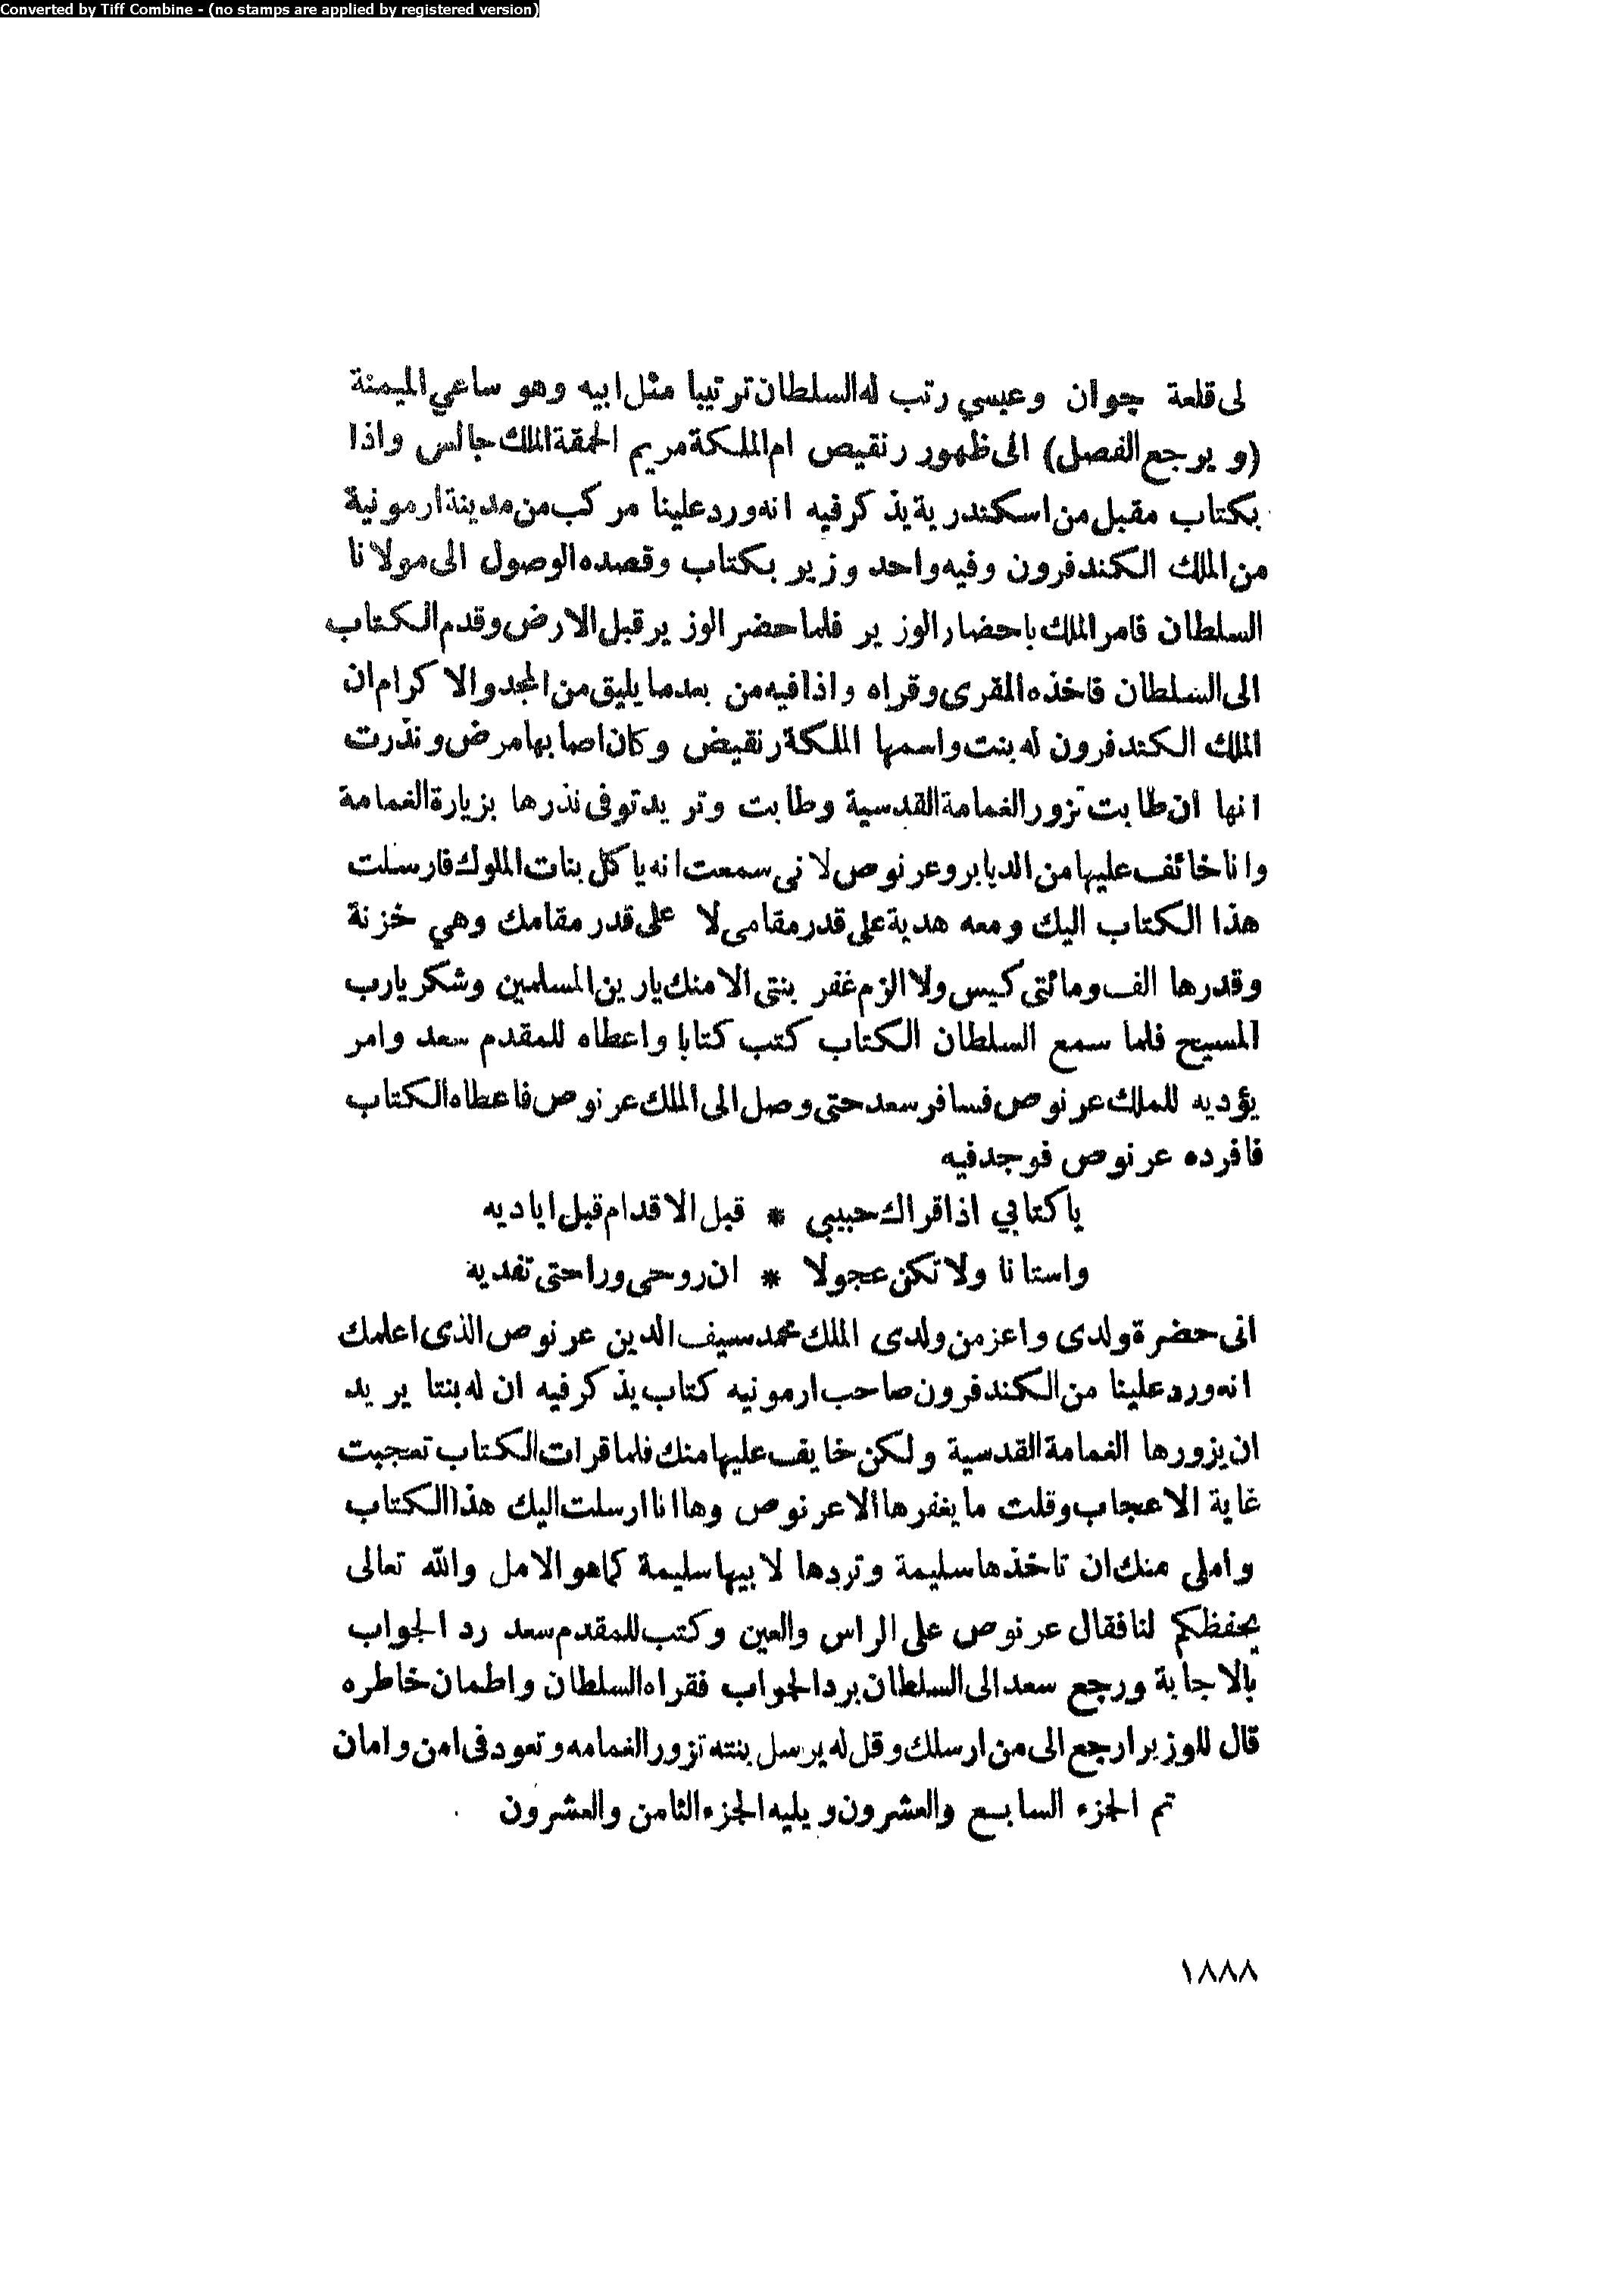 Converted by Tiff Combine - (no stamps are applied by registered version)
لى قلعة جوان وعيسي رتب له السلطان ترتيبا مثل ابيه وهو ساعي الميمنة
(ويرجع الفصل) الى ظهور رنقيص ام الملكة مريم الحمقة الملك جالس واذا
بكتاب مقبل من اسكندرية يذكر فيه انه ورد علينا مركب من مدينة ارمونية
من الملك الكندفرون وفيه واحد وزير بكتاب وقصده الوصول الى مولانا
السلطان فامر الملك باحضار الوزير فلما حضر الوزير قبل الارض وقدم الكتاب
الى السلطان فاخذه المقرى وقراه واذا فيه من بعد ما يليق من المجد والاكرام ان
الملك الكندفرون له بنت واسمها الملكة رنقيض وكان اصابها مرض ونذرت
انها ان طابت تزور الغمامة القدسية وطابت وتريد توفى نذرها بزيارة الغمامة
وانا خائف عليها من الديابرو عرنوص لانى سمعت انه ياكل بنات الملوك فارسلت
هذا الكتاب اليك ومعه هدية على قدر مقامى لا على قدر مقامك وهي خزنة
وقدرها الف ومائتى كيس ولا الزم غفر بنتى الا منك يارين المسلمين وشكر يارب
المسيح فلما سمع السلطان الكتاب كتب كتابا واعطاه للمقدم سعد وامر
يؤديه للملك عرنوص فسافر سعد حتى وصل الى الملك عرنوص فاعطاه الكتاب
فافرده عرنوص فوجد فيه
ياكتابي اذا قراك حبيبي * قبل الاقدام قبل اياديه
واستانا ولا تكن عجولا * ان روحى وراحتى تفديه
انى حضرة ولدى واعز من ولدى الملك محمد سيف الدين عرنوص الذى اعلمك
انه ورد علينا من الكندفرون صاحب ارمونيه كتاب يذكر فيه ان له بنتا يريد
ان يزورها الغمامة القدسية ولكن خايف عليها منك فلما قرات الكتاب تعجبت
غاية الاعجاب وقلت ما يغفرها الا عرنوص وها انا ارسلت اليك هذا الكتاب
واملى منك ان تاخذها سليمة وتردها لابيها سليمة كما هو الامل والله تعالى
يحفظكم لنا فقال عرنوص على الراس والعين وكتب للمقدم سعد رد الجواب
بالاجابة ورجع سعد الى السلطان برد الجواب فقراه السلطان واطمان خاطره
قال للوزير ارجع الى من ارسلك وقل له يرسل بنته تزور الغمامه وتعود فى امن وامان
تم الجزء السابع والعشرون ويليه الجزء الثامن والعشرون
١٨٨٨